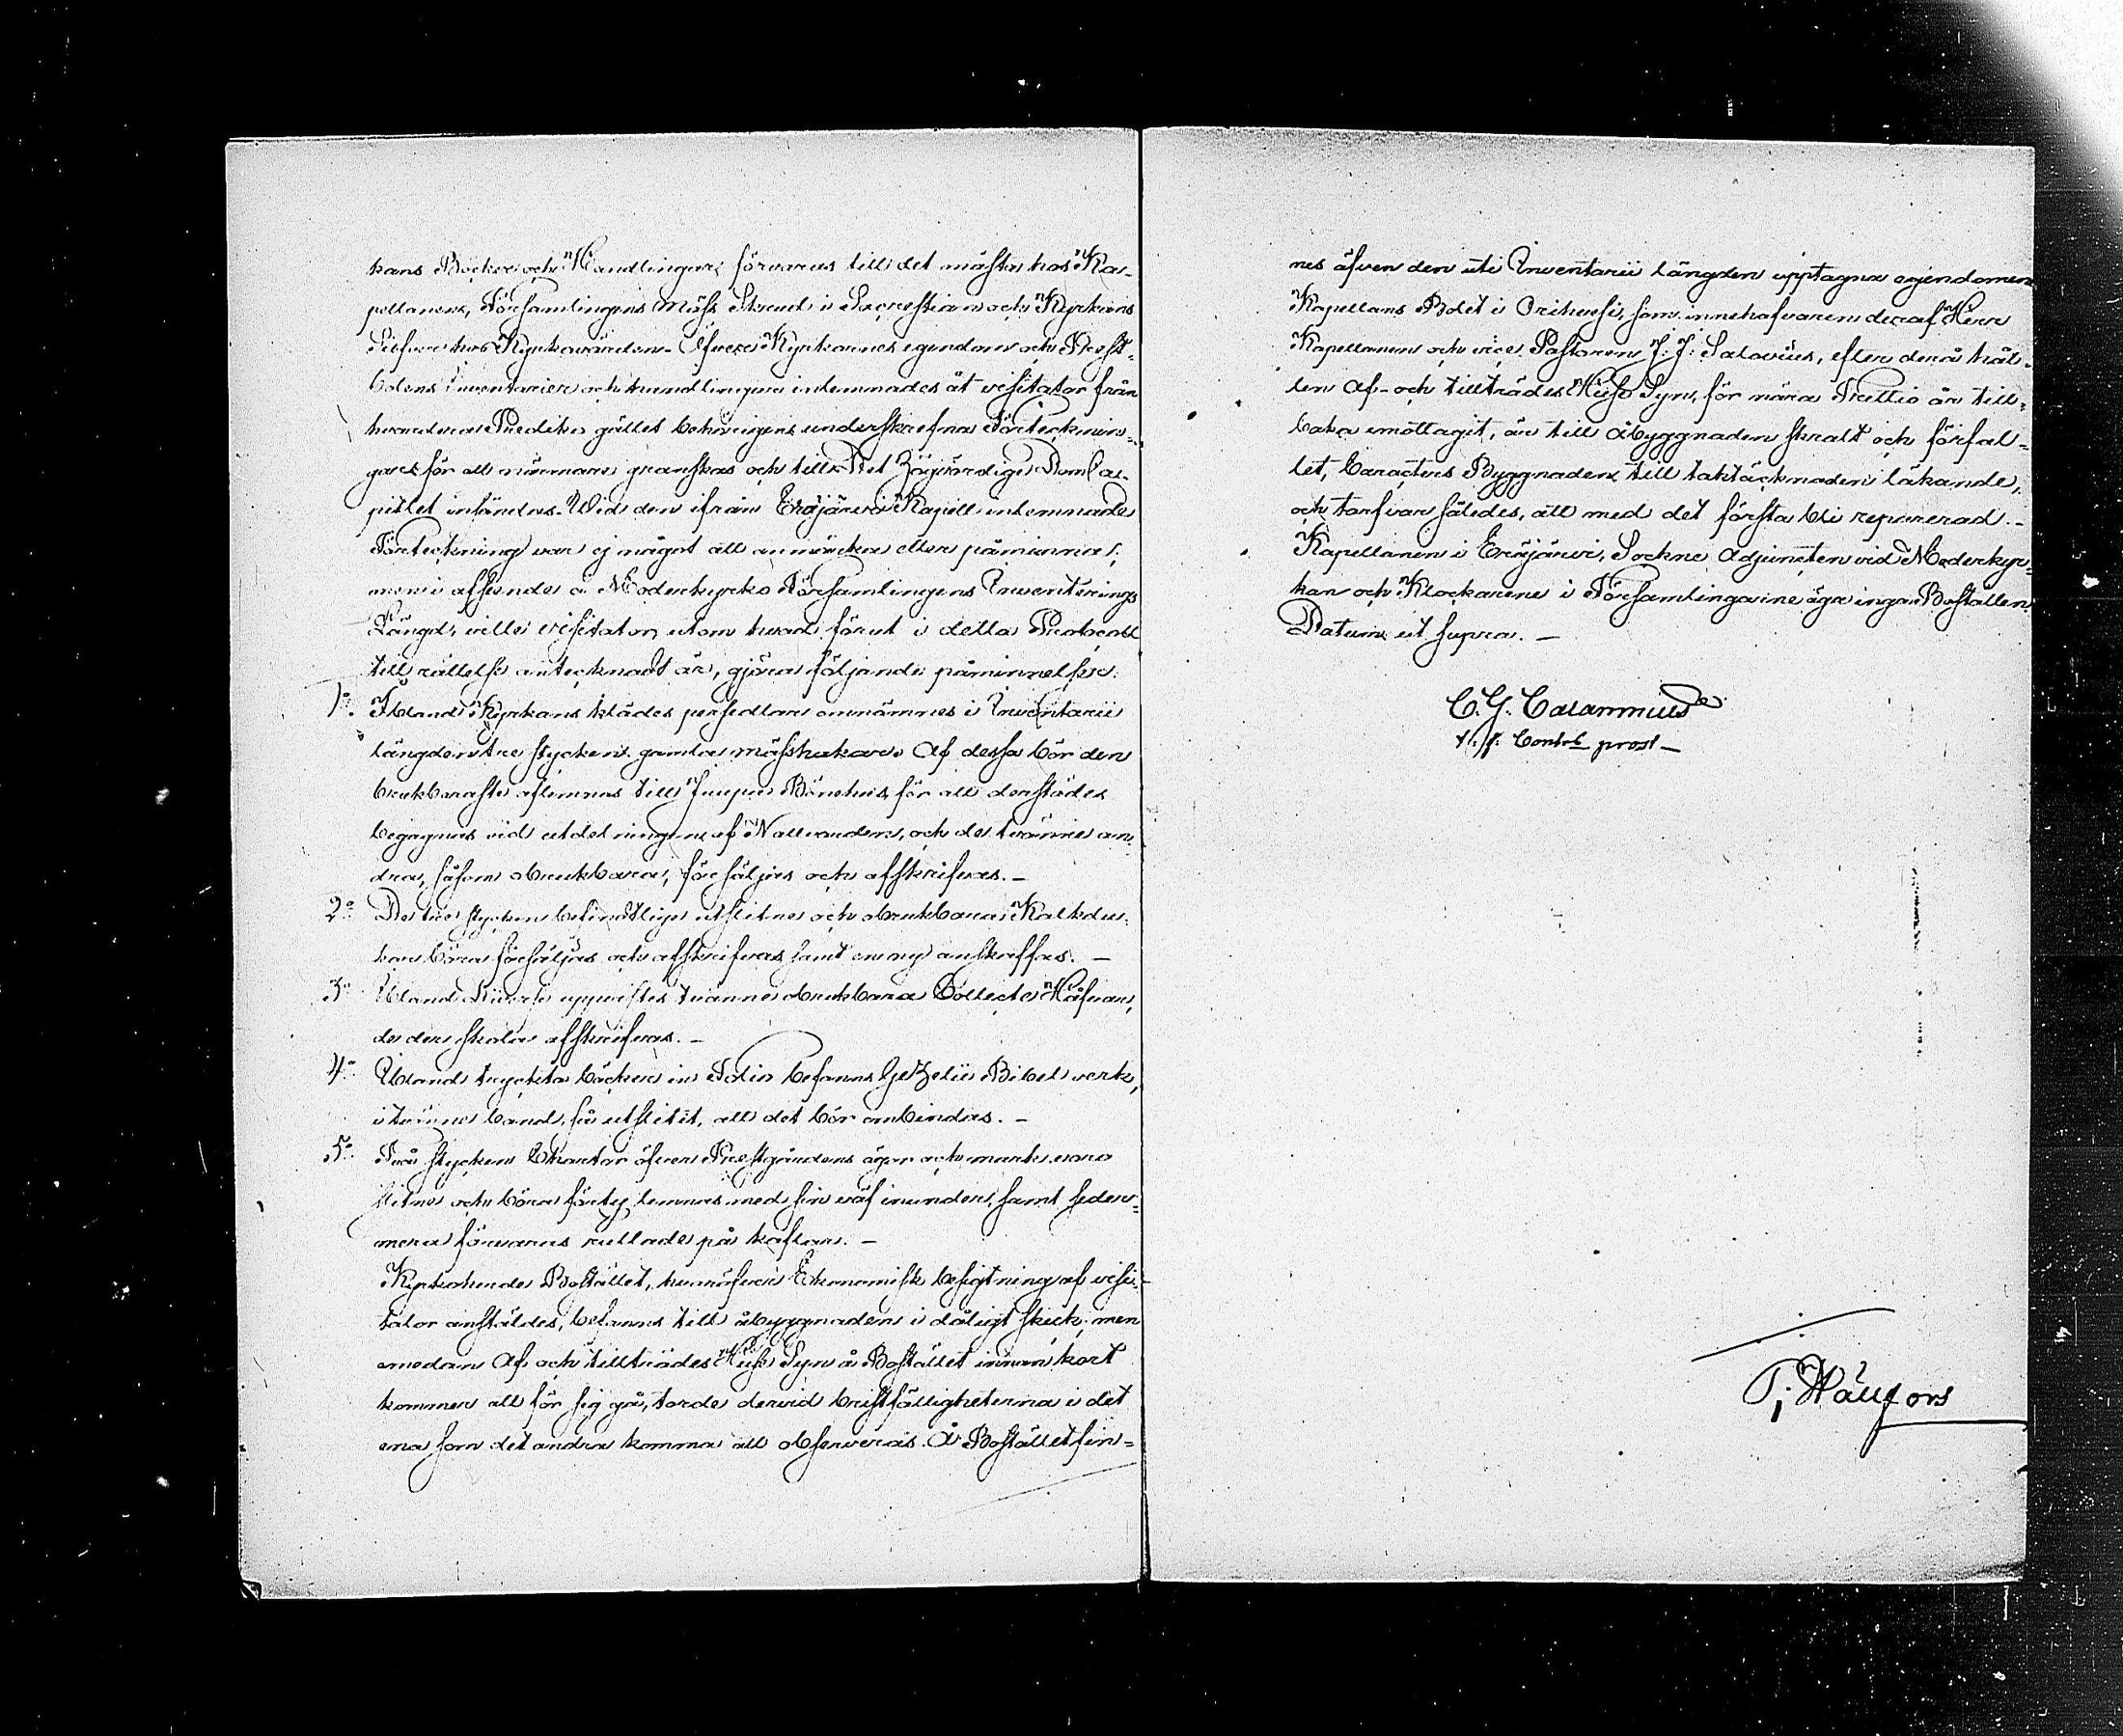 kans Böcker och Handlingar, förvaras till det mästa hos Ka-
pellanen, Församlingens Mäss Skrud i Sacrestian och Kyrkans
Silfver hos Kyrkovärden. Öfver Kyrkornes egendom och Prest-
bolens Inventarier och handlingar inlemnades åt visitator från
hvardera Prediko gället behörigen underskrefna Förteckning-
gar för att närmare granskas och till Det Högvördige DomCa-
pitlet insändas. Wid den ifrån Eräjärvi Kapell inlemnade
Förteckning var ej något att anmärka eller påminna;
men i afseende å Moderkyrko Församlingens Inventerings
Längd, ville visitator, utom hvad förut i detta Protocoll
till rättelse antecknadt är, gjöra följande påminnelser:
1o. Ibland Kyrkans klädes persedlar omnämnes i Inventarii
längden tre stycken gamla mässhakar. Af dessa bör den
brukbaraste aflemnas till Juupa Bönehus, för att derstädes
begagnas vid utdelningen af Nattvarden, och de tvänne an-
dra, såsom obrukbara, försäljas och afskrifvas. –
2o. De tre stycken befindtlige utslitne och obrukbara Kalkdu-
kar böra försäljas och afskrifvas samt en ny anskaffas. –
3o Ibland Diverse uppvistes tvänne obrukbara Collecte Håfvar,
de der skola afskrifvas. –
4o. Ibland tryckta böcker in Folio befanns Gezelii Bibel verk,
i tvänne band, så utslitit, att det bör ombindas. –
5o. Två stycken Chartor öfver Prestgårdens ägor och mark voro
slitne och böra förty lemnas med fin väf inunder, samt seder-
mera förvaras rullade på kaflar. –
Kyrkoherde Bostället, hvaröfver Ekonomisk besigtning af visi-
tator anstäldes, befanns till åbyggnaden i dåligt skick; men
emedan Af och tillträdes Huse Syn å Bostället innan kort
kommer att för sig gå, torde dervid bristfälligheterna i det
ena som det andra komma att observeras. Å Bostället fin-
nes äfven den uti Inventarii längden upptagna egendomen
Kapellans Bolet i Orihvesi, som innehafvaren deraf Herr
Kapellanen och vice Pastoren J: J: Salovius, efter derå hål-
len Af- och tillträdes Huse Syn, för nära Trettio år till-
baka emottagit, är till åbyggnaden skralt och förfal-
let, Caracters Byggnaden till taktäcknaden läkande,
och tarfvar således, att med det första bli reparerad. –
Kapellanen i Eräjärvi, Sockne Adjuncten vid Moderkyr-
kan och Klockarene i Församlingarne äga inga Boställen.
Datum ut supra. –
C. G. Calamnius
t. f. Contr. prost –